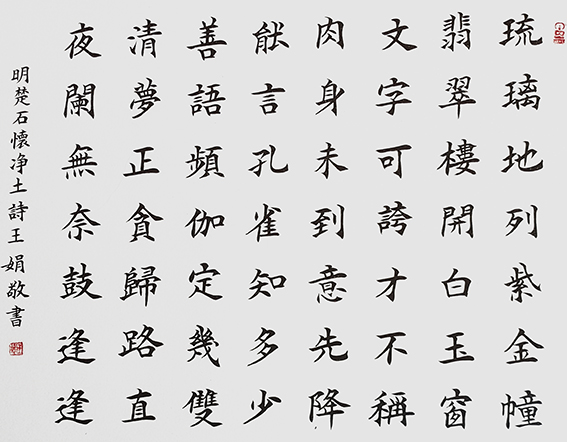 琉璃地列紫金幢
翡翠樓開白玉窗
文字可誇才不稱
肉身未到意先降
能言孔雀知多少
善語頻伽定幾雙
清夢正貪歸路直
夜闌無奈鼓逢逢
明楚石懷净土詩王娟敬書